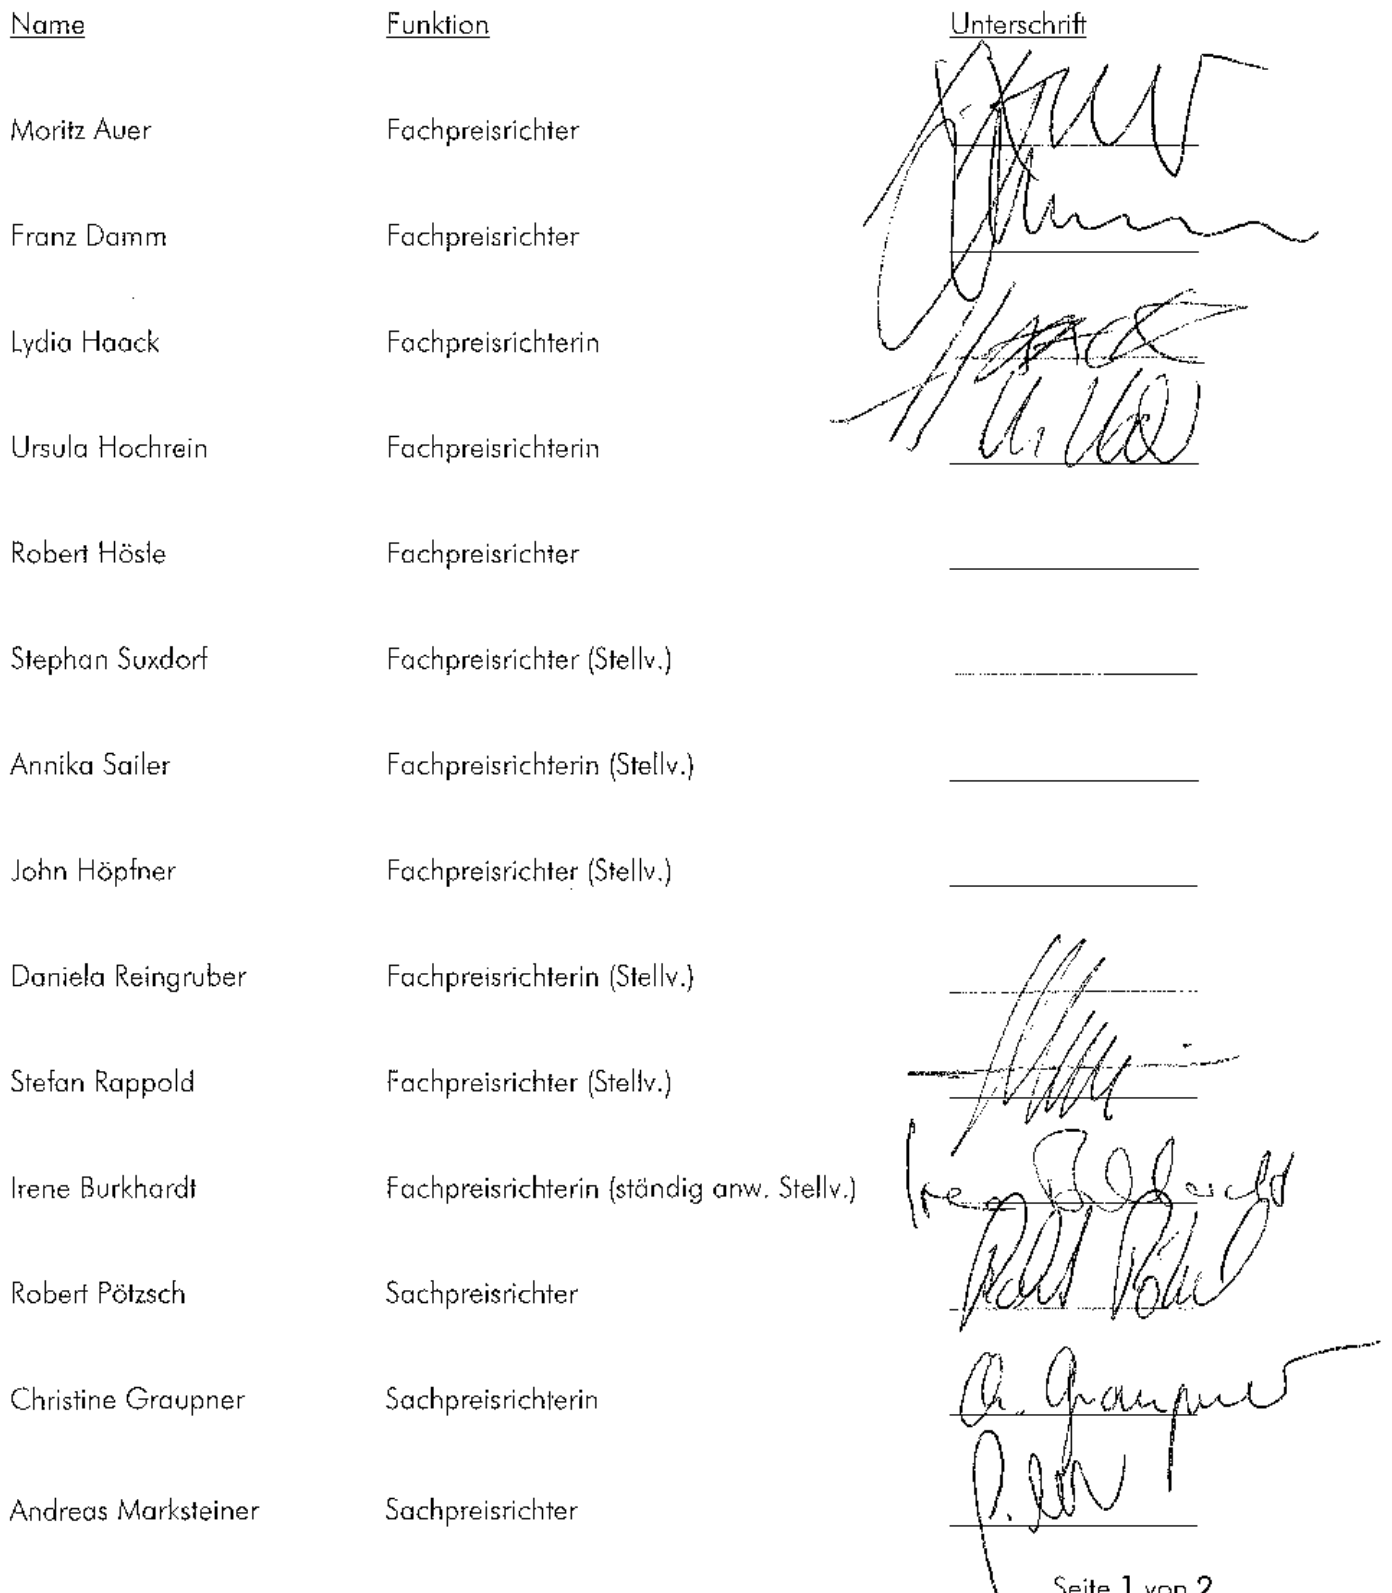 Name Funktion Unterschrift
Moritz Auer Fachpreisrichter
Franz Damm Fachpreisrichter
Lydia Haack Fachpreisrichterin Haack
Ursula Hochrein Fachpreisrichterin
Robert Hösle Fachpreisrichter
Stephan Suxdorf Fachpreisrichter (Stellv.)
Annika Sailer Fachpreisrichterin (Stellv.)
John Höpfner Fachpreisrichter (Stellv.)
Daniela Reingruber Fachpreisrichterin (Stellv.)
Stefan Rappold Fachpreisrichter (Stellv.)
Irene Burkhardt Fachpreisrichterin (ständig anw. Stellv.) Irene Burkhardt
Robert Pötzsch Sachpreisrichter
Christine Graupner Sachpreisrichterin Ch. Graupner
Andreas Marksteiner Sachpreisrichter
Seite 1 von 2